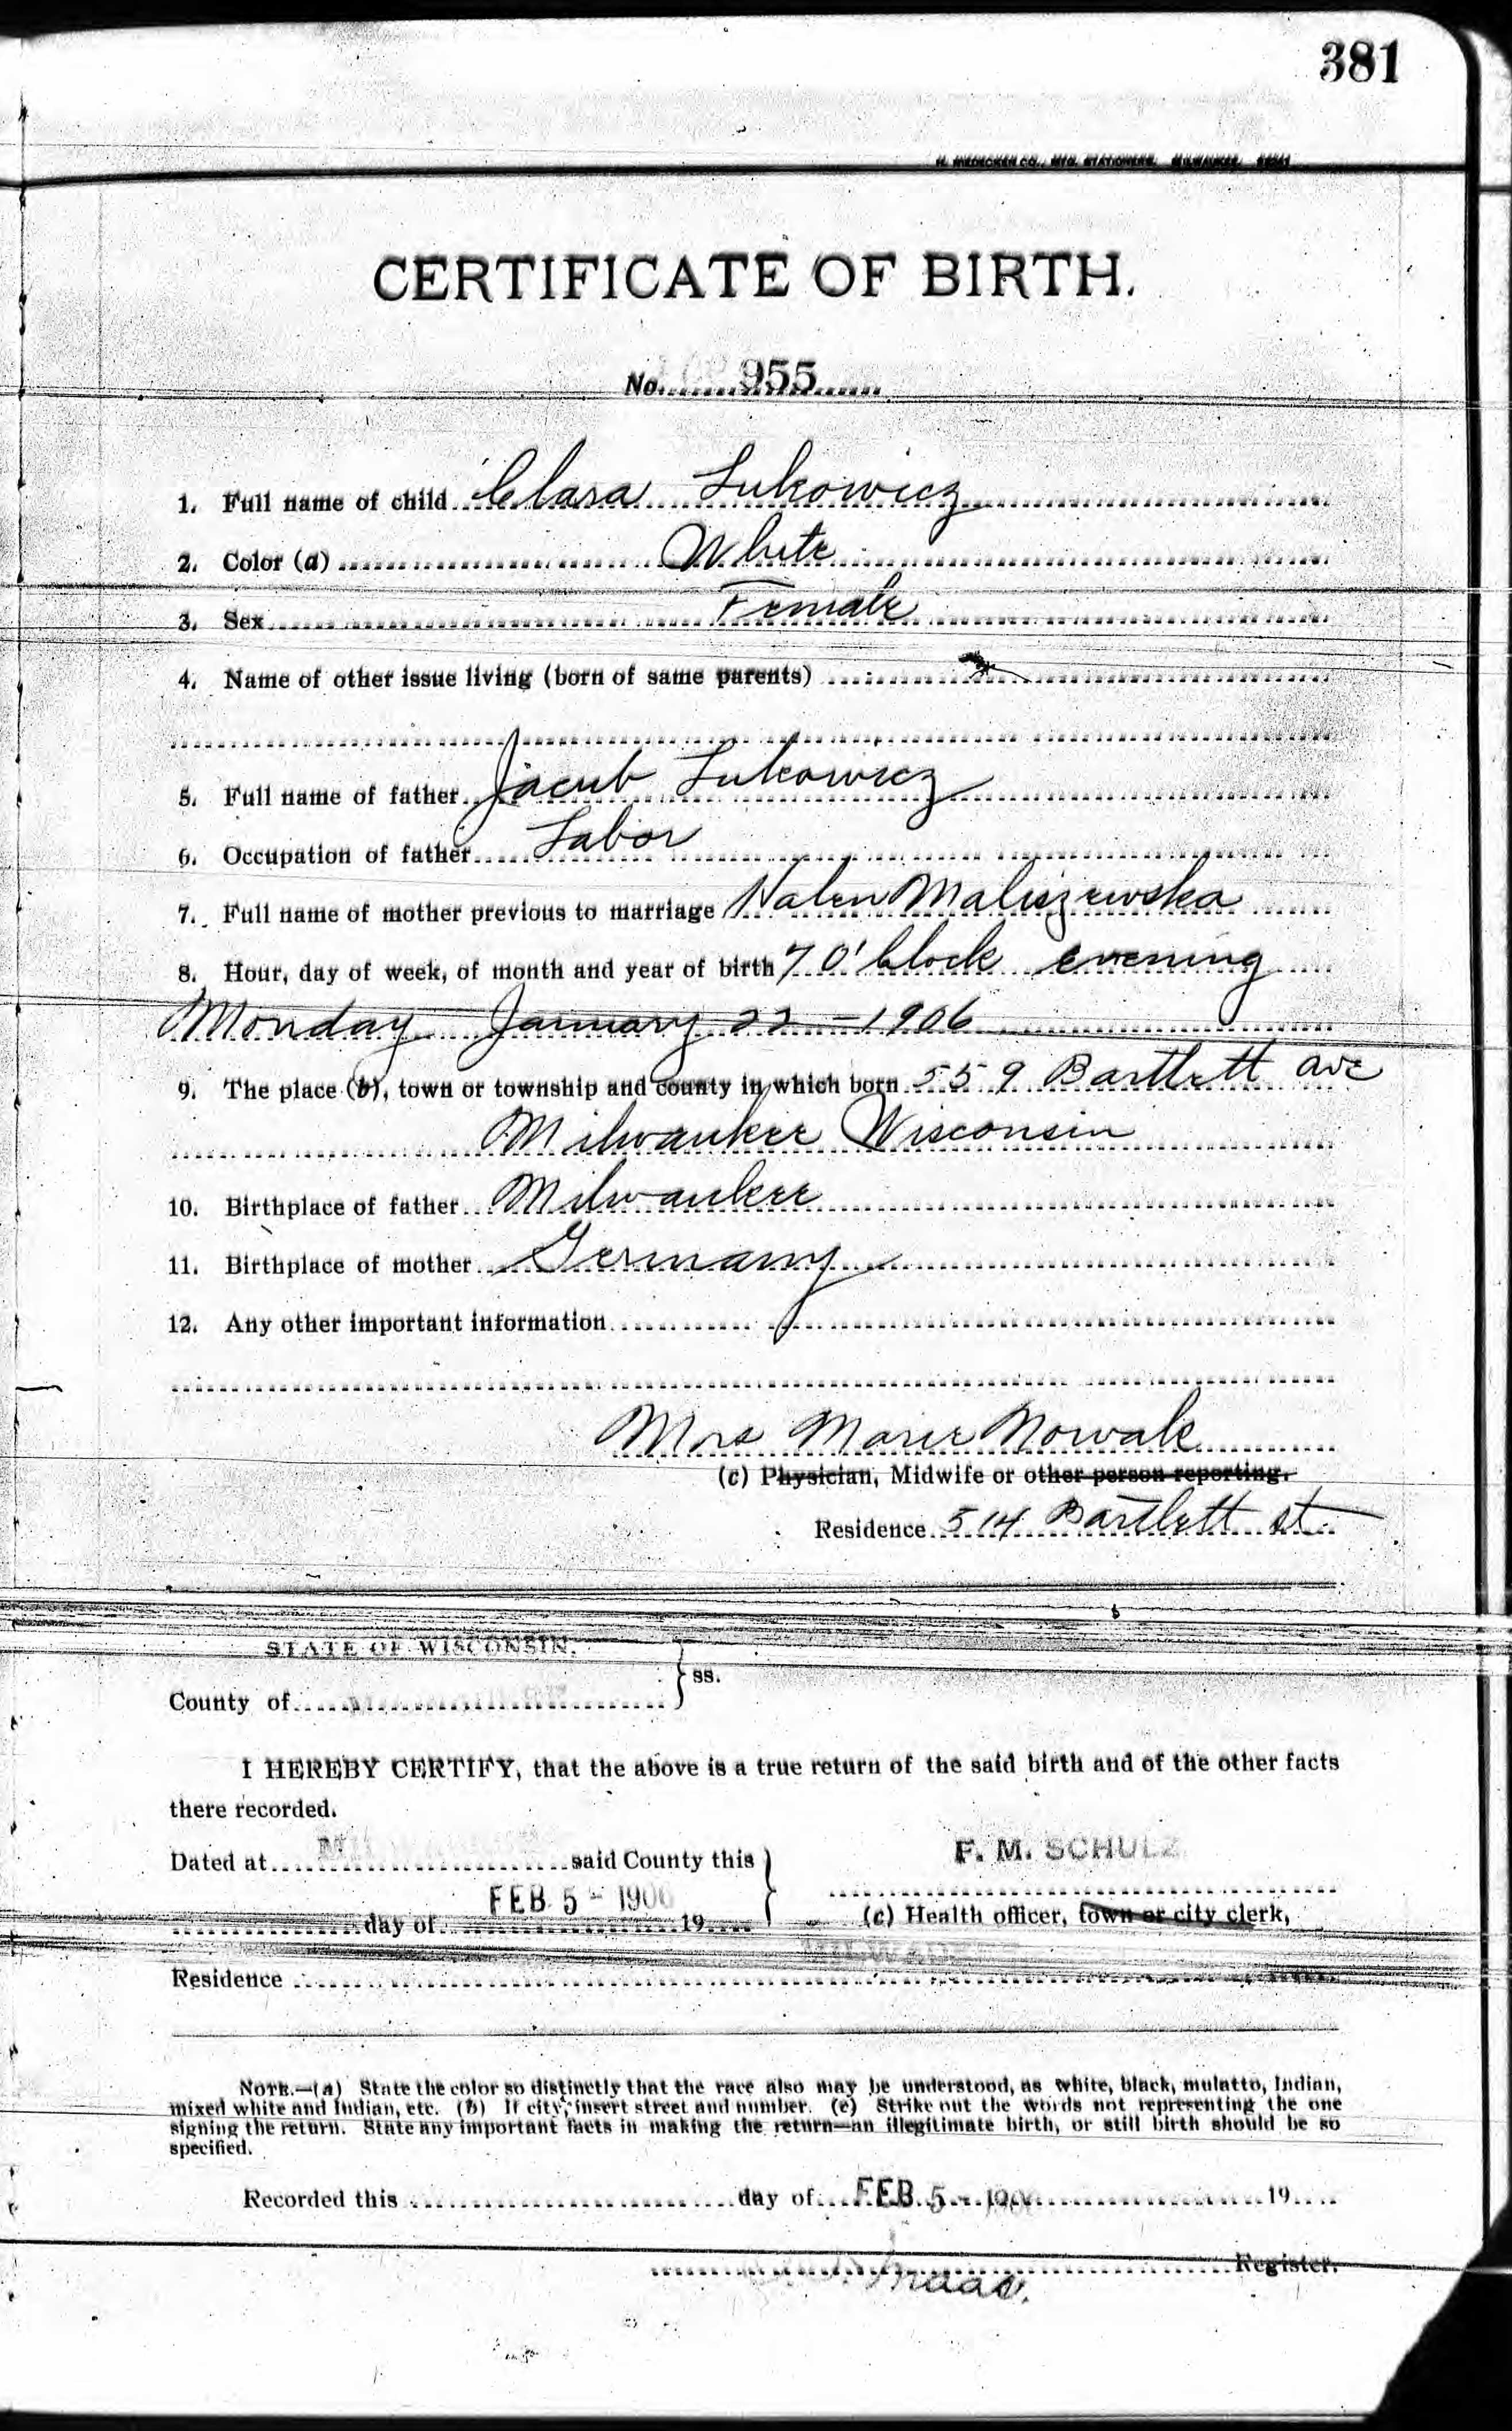 381
CERTIFICATE OF BIRTH.
No. 955
1. Full name of child Clara Lukowicz
2. Color (a) White
3. Sex Female
4. Name of other issue living (born of same parents)
5. Full name of father Jacub Lukowicz
6. Occupation of father Labor
7. Full name of mother previous to marriage Halen Maliszewska
8. Hour, day of week, of month and year of birth 7 O'Clock evening
Monday January 22 - 1906
9. The place (b), town or township and county in which born 559 Bartlett ave
Milwaukee Wisconsin
10. Birthplace of father Milwaukee
11. Birthplace of mother Germany
12. Any other important information
Mrs Marie Nowak
(c) Physician, Midwife or other person reporting.
Residence 514 Bartlett st
STATE OF WISCONSIN,
County of ss.
I HEREBY CERTIFY, that the above is a true return of the said birth and of the other facts
there recorded.
Dated at said County this
F. M. SCHULZ
FEB 5 - 1906
day of 19
(c) Health officer, town or city clerk,
Residence
NOTE.—(a) State the color so distinctly that the race also may be understood, as white, black, mulatto, Indian,
mixed white and Indian, etc. (b) If city, insert street and number. (c) Strike out the words not representing the one
signing the return. State any important facts in making the return—an illegitimate birth, or still birth should be so
specified.
Recorded this day of FEB 5 - 190 19
Register.